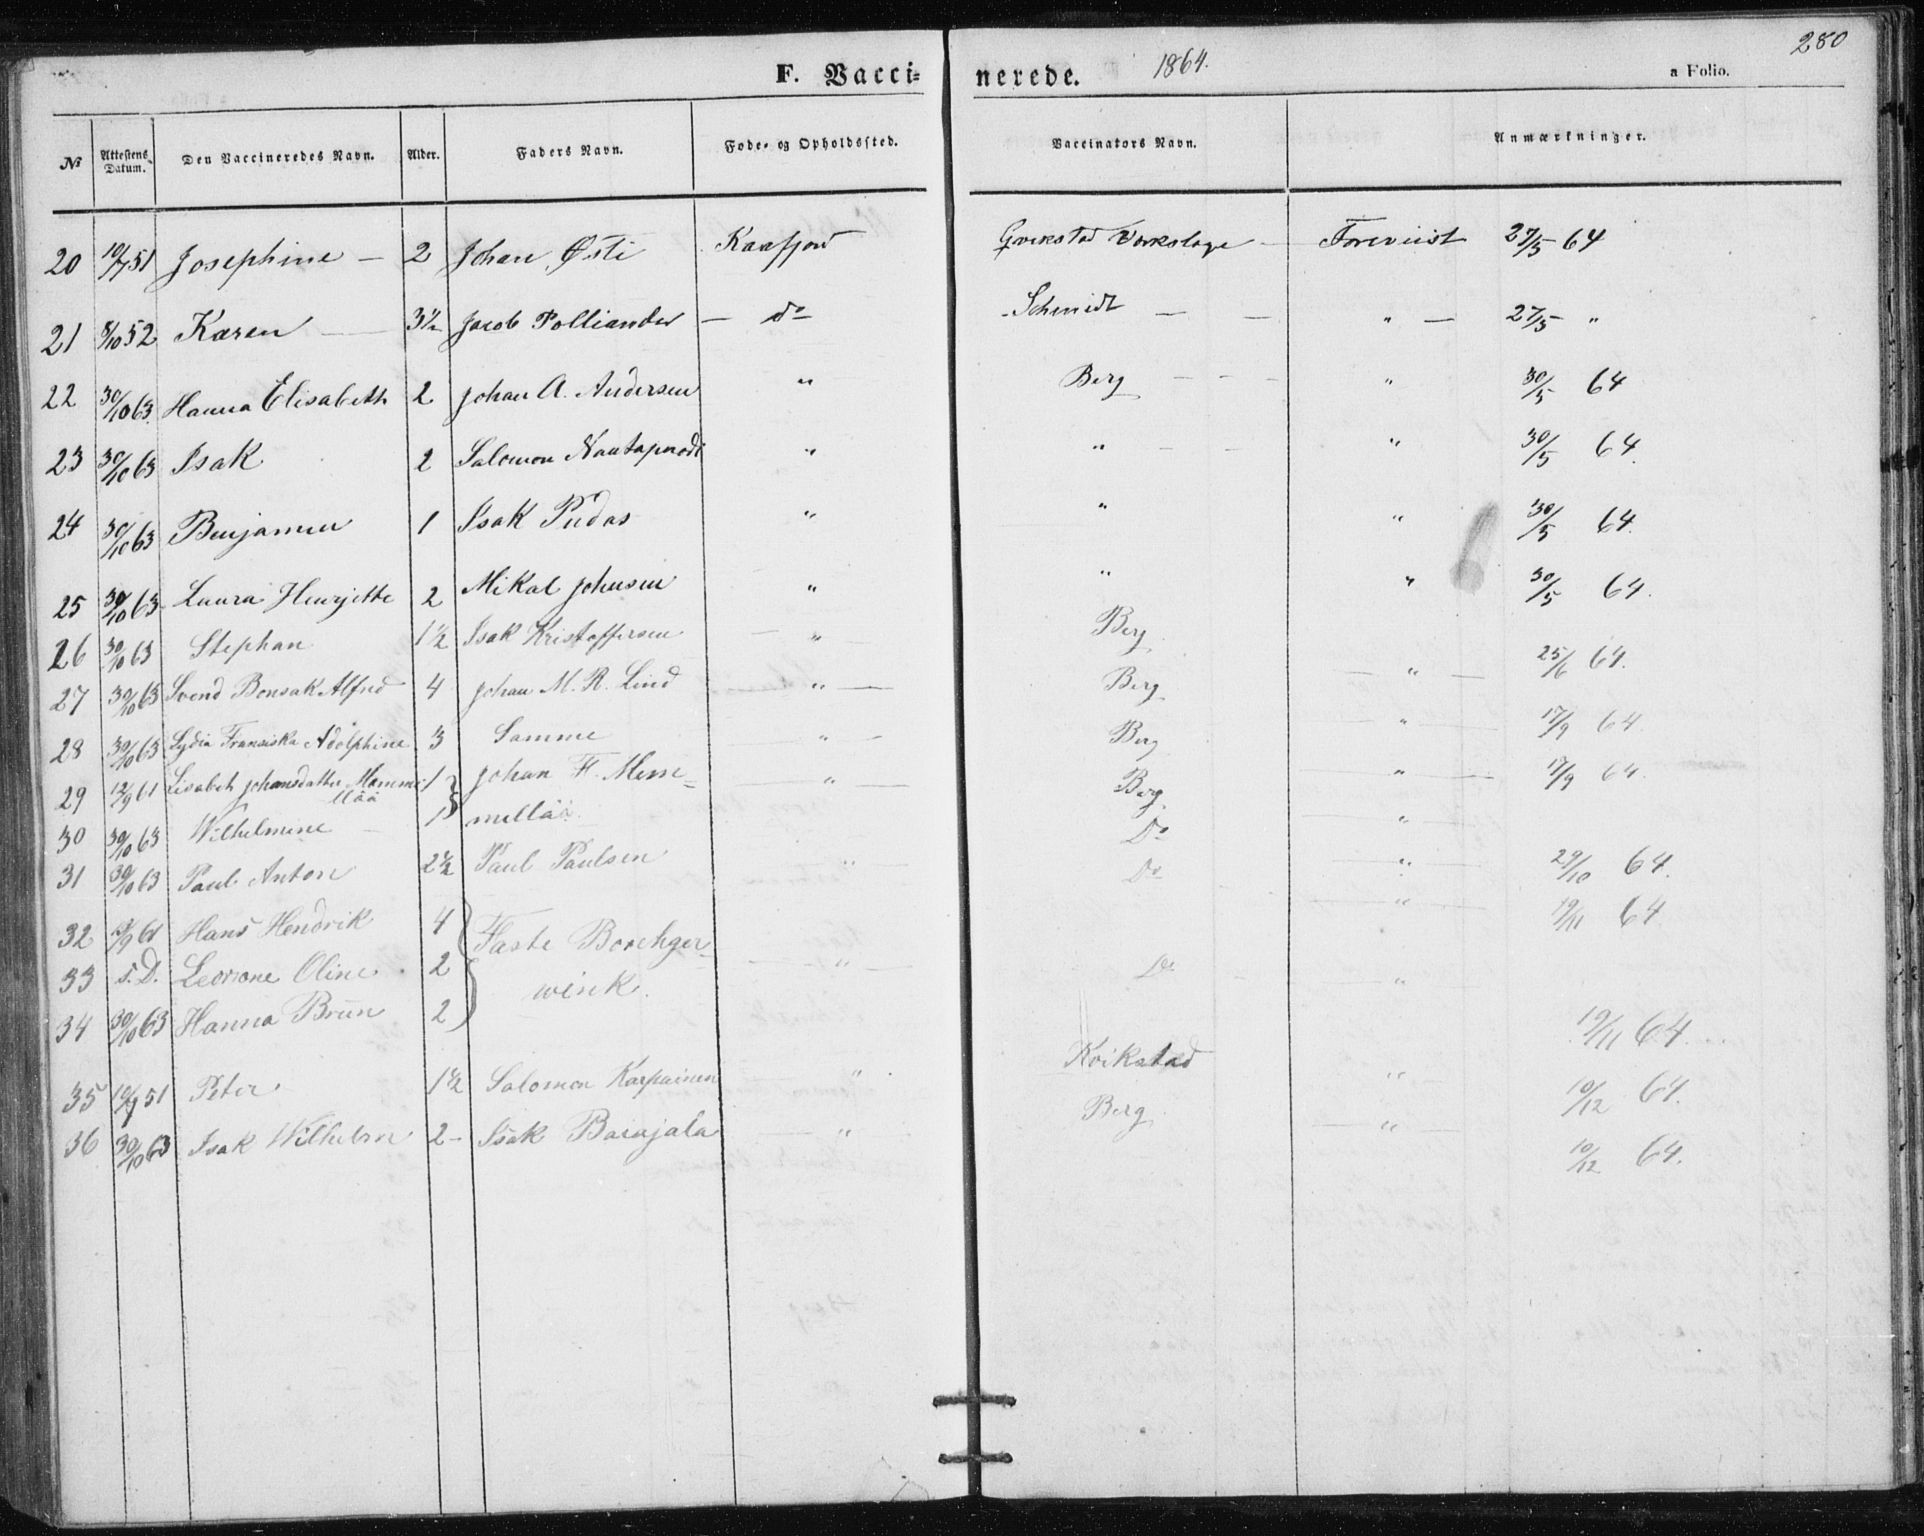 280
F. Vacci= nerede. 1864. a Folio.
№ Attestens Datum. Den Vaccineredes Navn. Alder. Faders Navn. Føde- og Opholdssted. Vaccinators Navn. Anmærkninger.
20 10/7 51 Josephine — 2 Johan Østi Kaafjord Foreviist 27/5 64
21 8/10 52 Karen — 3½ Jacob Polliander — do Schmidt — — " — 27/5 "
22 30/10 63 Hanna Elisabeth 2 Johan A. Andersen " Berg — — — " 30/5 64
23 30/10 63 Isak 2 Salomon " " — — " 30/5 64.
24 30/10 63 Benjamin 1 Isak Pudas " " " 30/5 64.
25 30/10 63 Laura Henrjette 2 Mikal Johnsen " " " 30/5 64.
26 30/10 63 Stephan 1½ Isak Kristoffersen — " — Berg — " — 25/6 64.
27 30/10 63 Svend Bonsak Alfred 4 Johan M. R. Lind " — Berg — " — 17/9 64.
28 30/10 63 Lydia Fransiska Adolphine 3 Samme " — Berg " — 17/9 64.
29 12/9 61 Lisabeth Johansdatter Memme- 1 } Johan F. Meme= — " — Berg — " —
llää
30 30/10 63 Wilhelmine — 1 mellää Do
31 30/10 63 Paul Anton 2½ Paul Paulsen " Do — " — 29/10 64.
32 61 Hans Hendrik 4 } Faste Borchger= — " — 19/11 64
33 s. D. Leonone Oline 2 } wink. — " — Do — "
34 30/10 63 Hanna Brun 2 19/11 64
35 10/7 51 Peter 1½ Salomon Karpainen — " Kvikstad " — 10/12 64.
36 30/10 63 Isak Wilhelm 2 – Isak Barajala — " — Berg — " — 10/12 64.